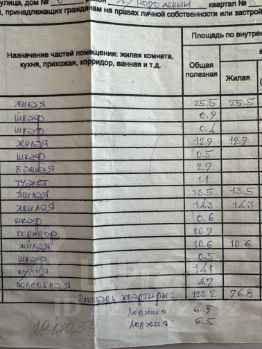 улица, дом №
квартал №
, принадлежащих гражданам на правах личной собственности или застрой
Назначение частей помещения: жилая комната, кухня, прихожая, корридор, ванная и т.д.
Площадь по внутре
Общая полезная
Жилая
жилая 25.5 25.5
шкаф 0.9
шкаф
жилая 12.9 12.9
шкаф 0.5
ванная 2.7
туалет 1.1
жилая 13.5 13.5
жилая 14.3 14.3
шкаф 0.6
коридор 20.9
жилая 10.6 10.6
шкаф 0.5
кухня
кладовая 4.7
Площадь квартиры: 123.2 76.8
лоджия 6.5
лоджия: 6.5